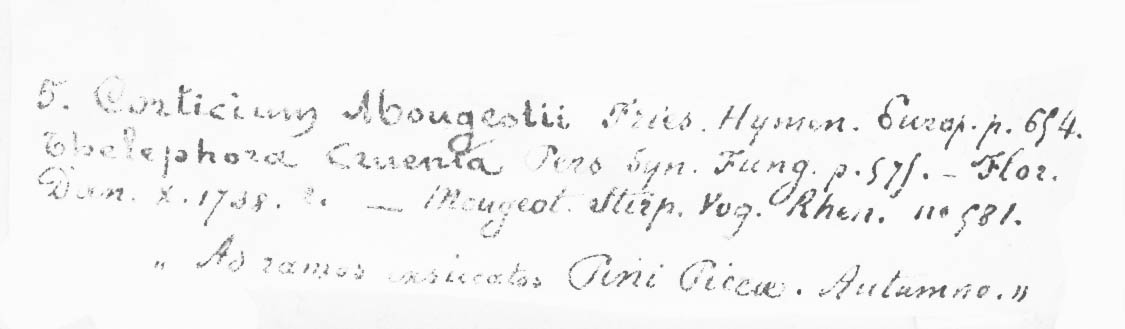 5. Corticium Mougeotii Fries. Hymen. Europ. p. 654.
Thelephora Cruenta Pers Syn. Fung. p. 575. – Flor.
Dan. X. 1738. 2. — Mougeot. Stirp. Vog. Rhen. no 581.
„ Ad ramos exsiccatos Pini Piceæ. Autumno. "